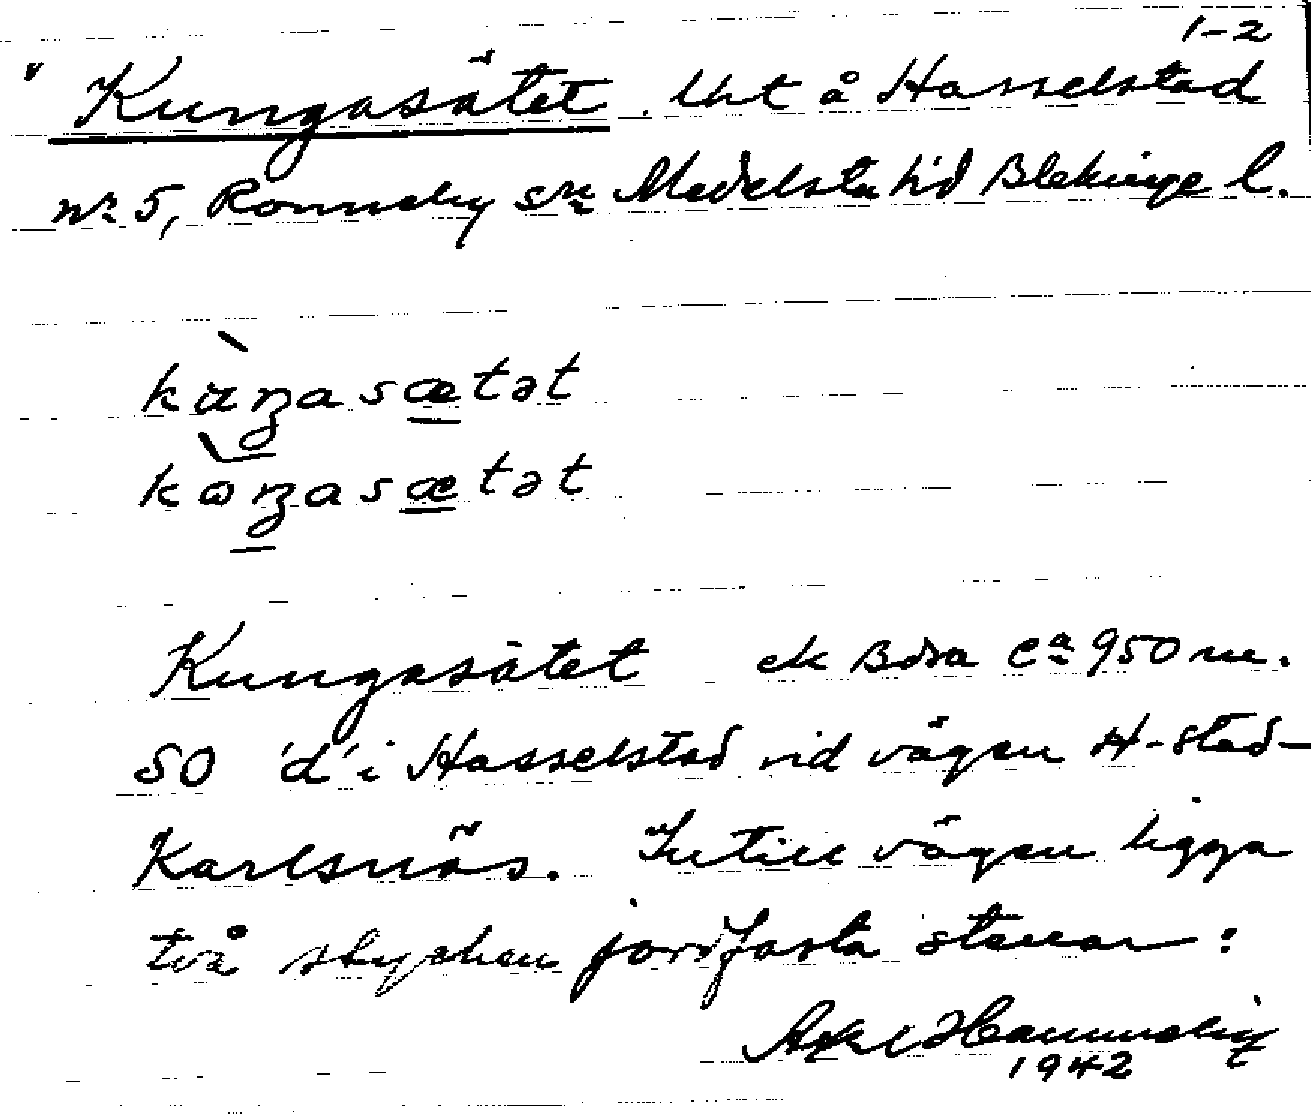 1-2
" Kungasätet. Utt å Hasselstad
nr 5, Ronneby sn Medelsta hd Blekinge l.
kùŋasætət
kòŋasætət
Kungasätet ek Bdra ca 950 m.
SO 'd' i Hasselstad vid vägen H-stad-
Karlsnäs. Intill vägen ligga
två stycken jordfasta stenar:
Axel Hammelin
1942